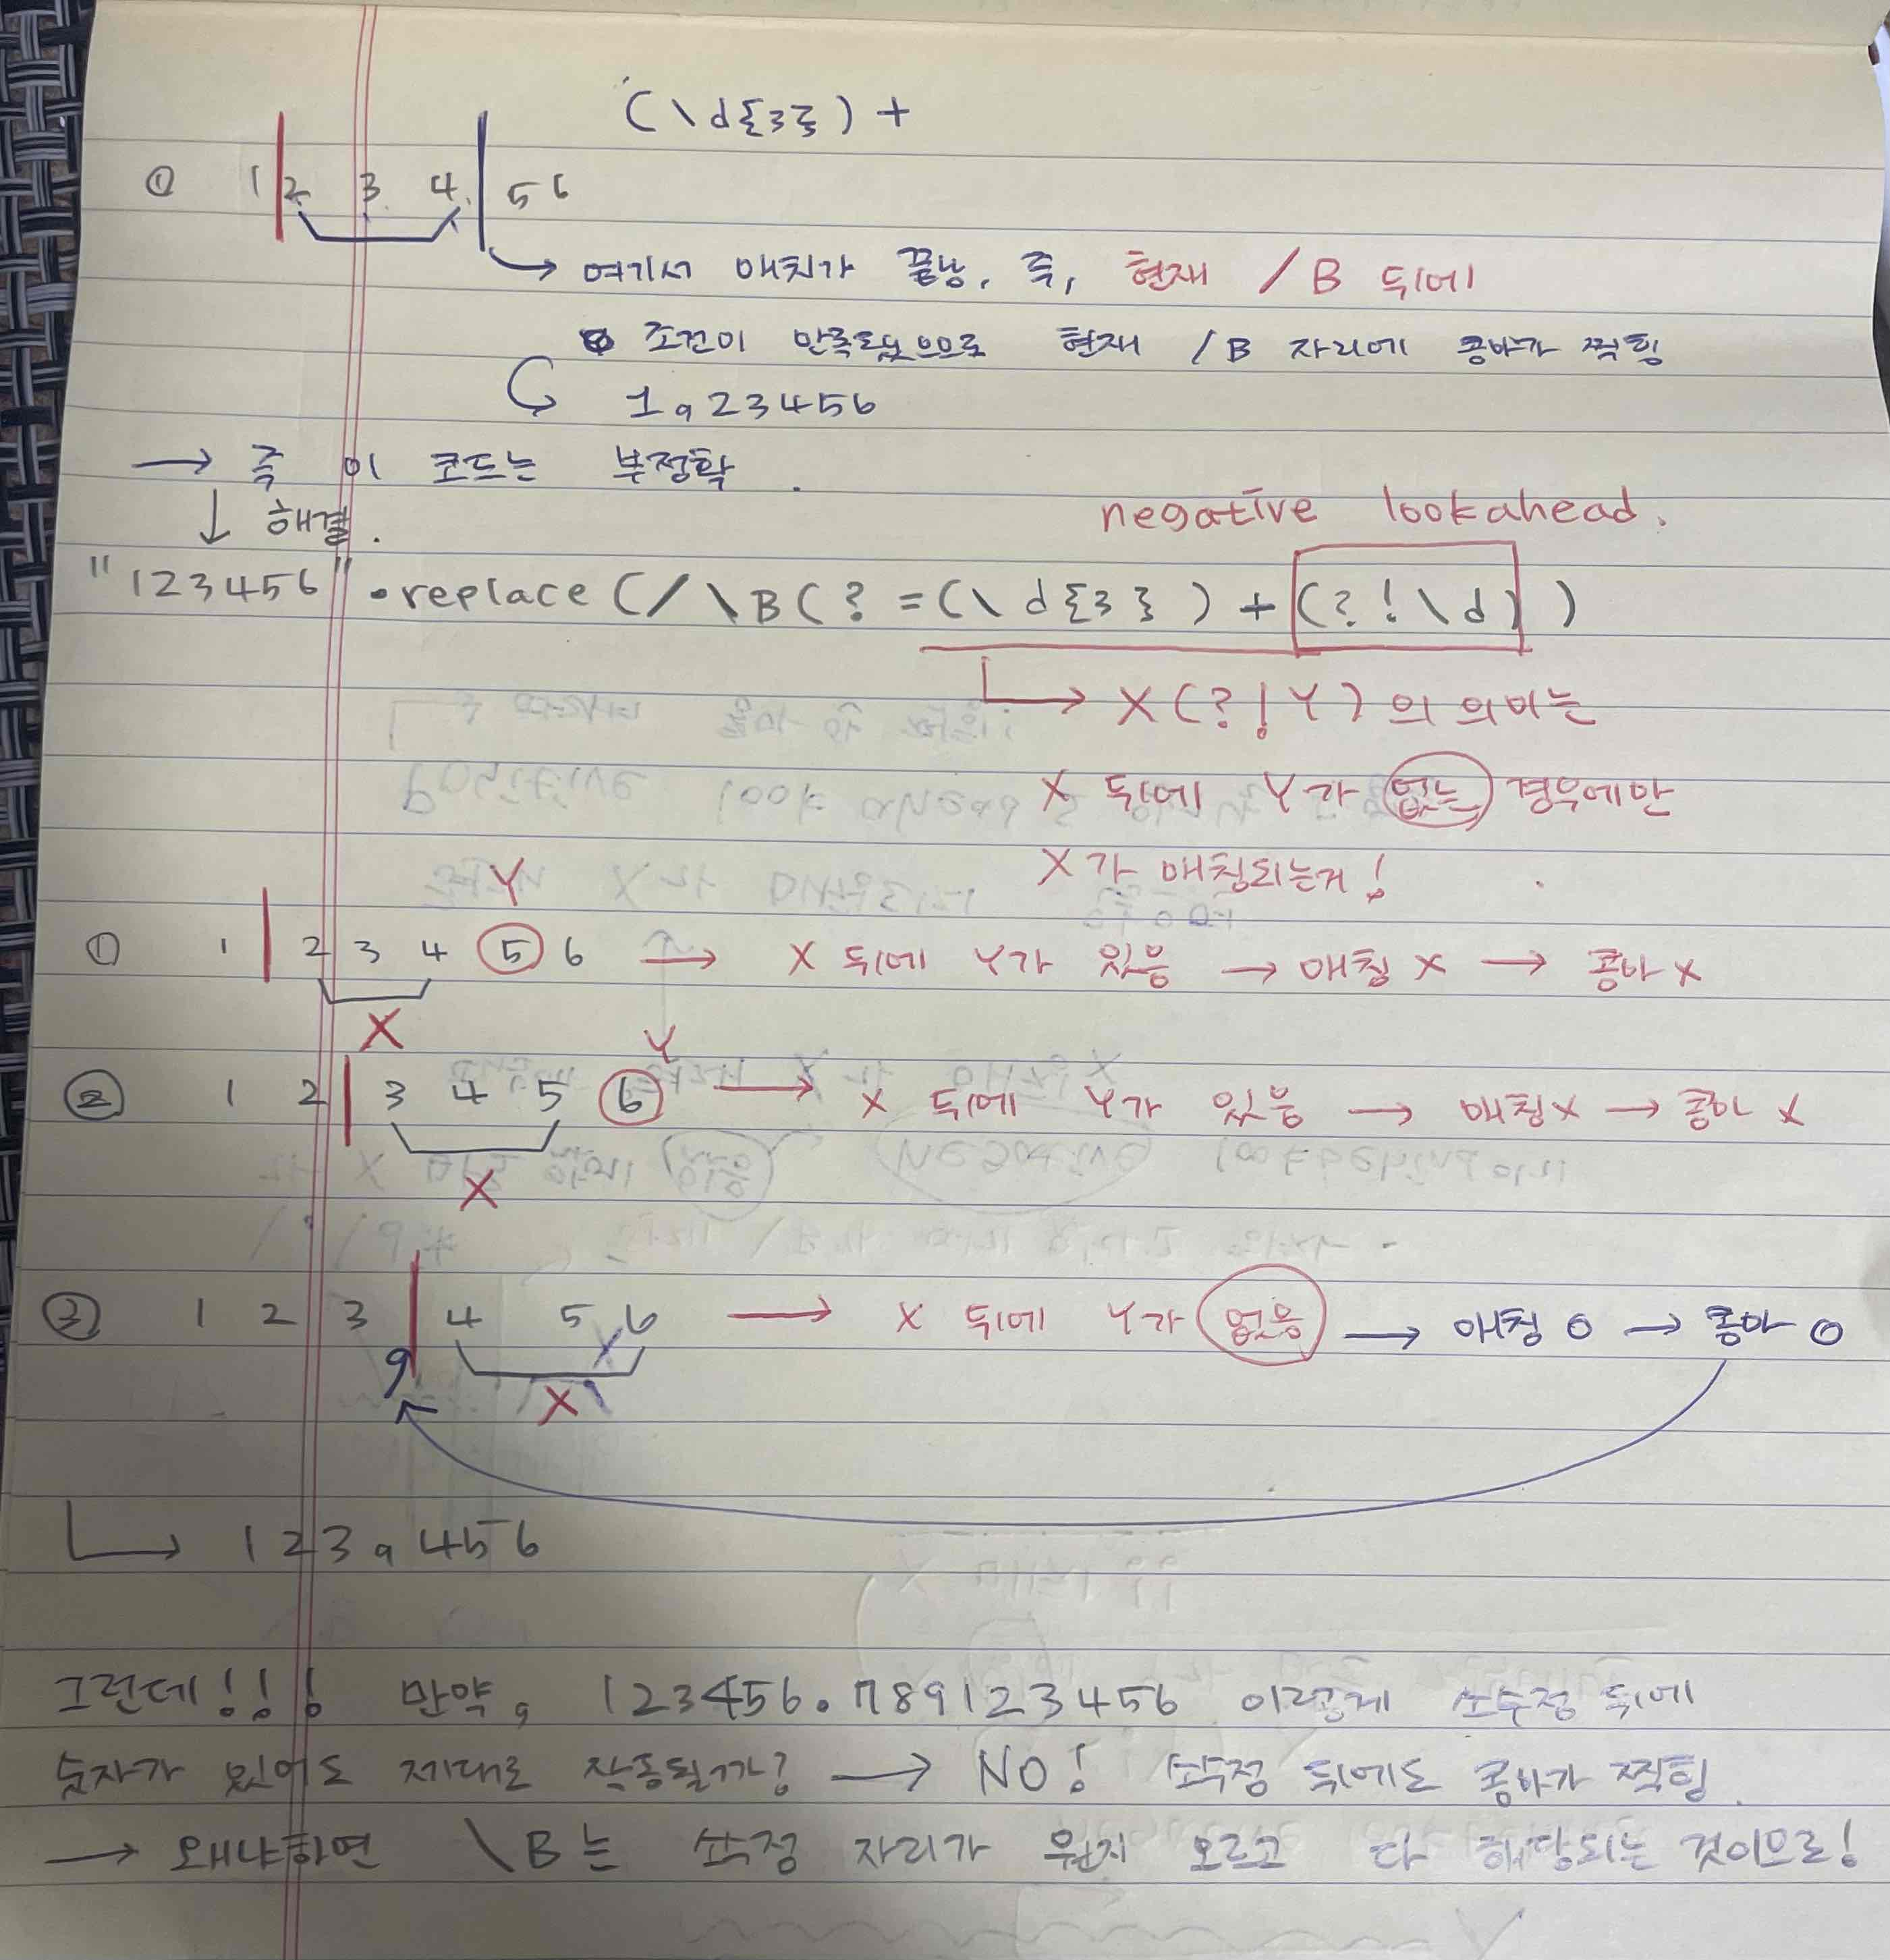 (\d{3})+
① 1 2 3 4 5 6
→ 여기서 매치가 끝남, 즉, 현재 /B 뒤에
조건이 만족됐으므로 현재 /B 자리에 콤마가 찍힘
1,23456
→ 즉 이 코드는 부정확.
↓ 해결.
negative lookahead.
"123456".replace(/\B(?=(\d{3})+(?!\d))
→ X(?!Y)의 의미는
X 뒤에 Y가 없는 경우에만
X가 매칭되는거!
Y
① 1 2 3 4 5 6 → X 뒤에 Y가 있음 → 매칭 X → 콤마 X
X
Y
② 1 2 3 4 5 6 → X 뒤에 Y가 있음 → 매칭 X → 콤마 X
X
③ 1 2 3 , 4 5 6 → X 뒤에 Y가 없음 → 매칭 O → 콤마 O
X
→ 123,456
그런데!!! 만약, 123456.789123456 이렇게 소수점 뒤에
숫자가 있어도 제대로 작동될까? → NO! 소수점 뒤에도 콤마가 찍힘.
→ 왜냐하면 \B는 소수점 자리가 뭔지 모르고 다 해당되는 것이므로!